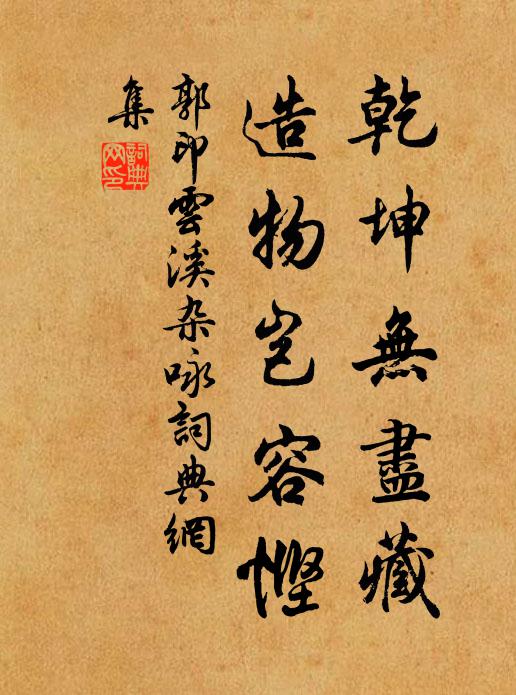 乾坤無盡藏
造物豈容慳
郭印雲溪杂咏詞典網
集
詞典網印